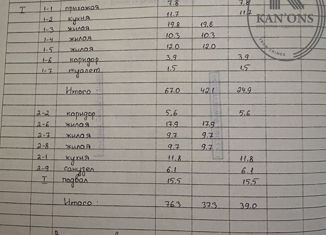 I 1-1 прихожая 7.8 7.8
1-2 кухня 11.7 11.7
1-3 жилая 19.8 19.8
1-4 жилая 10.3 10.3
1-5 жилая 12.0 12.0
1-6 коридор 3.9 3.9
1-7 туалет 1.5 1.5
Итого 67.0 42.1 24.9
2-2 коридор 5.6 5.6
2-6 жилая 17.9 17.9
2-7 жилая 9.7 9.7
2-8 жилая 9.7 9.7
2-1 кухня 11.8 11.8
2-9 санузел 6.1 6.1
I подвал 15.5 15.5
Итого: 76.3 37.3 39.0
KAN'ONS